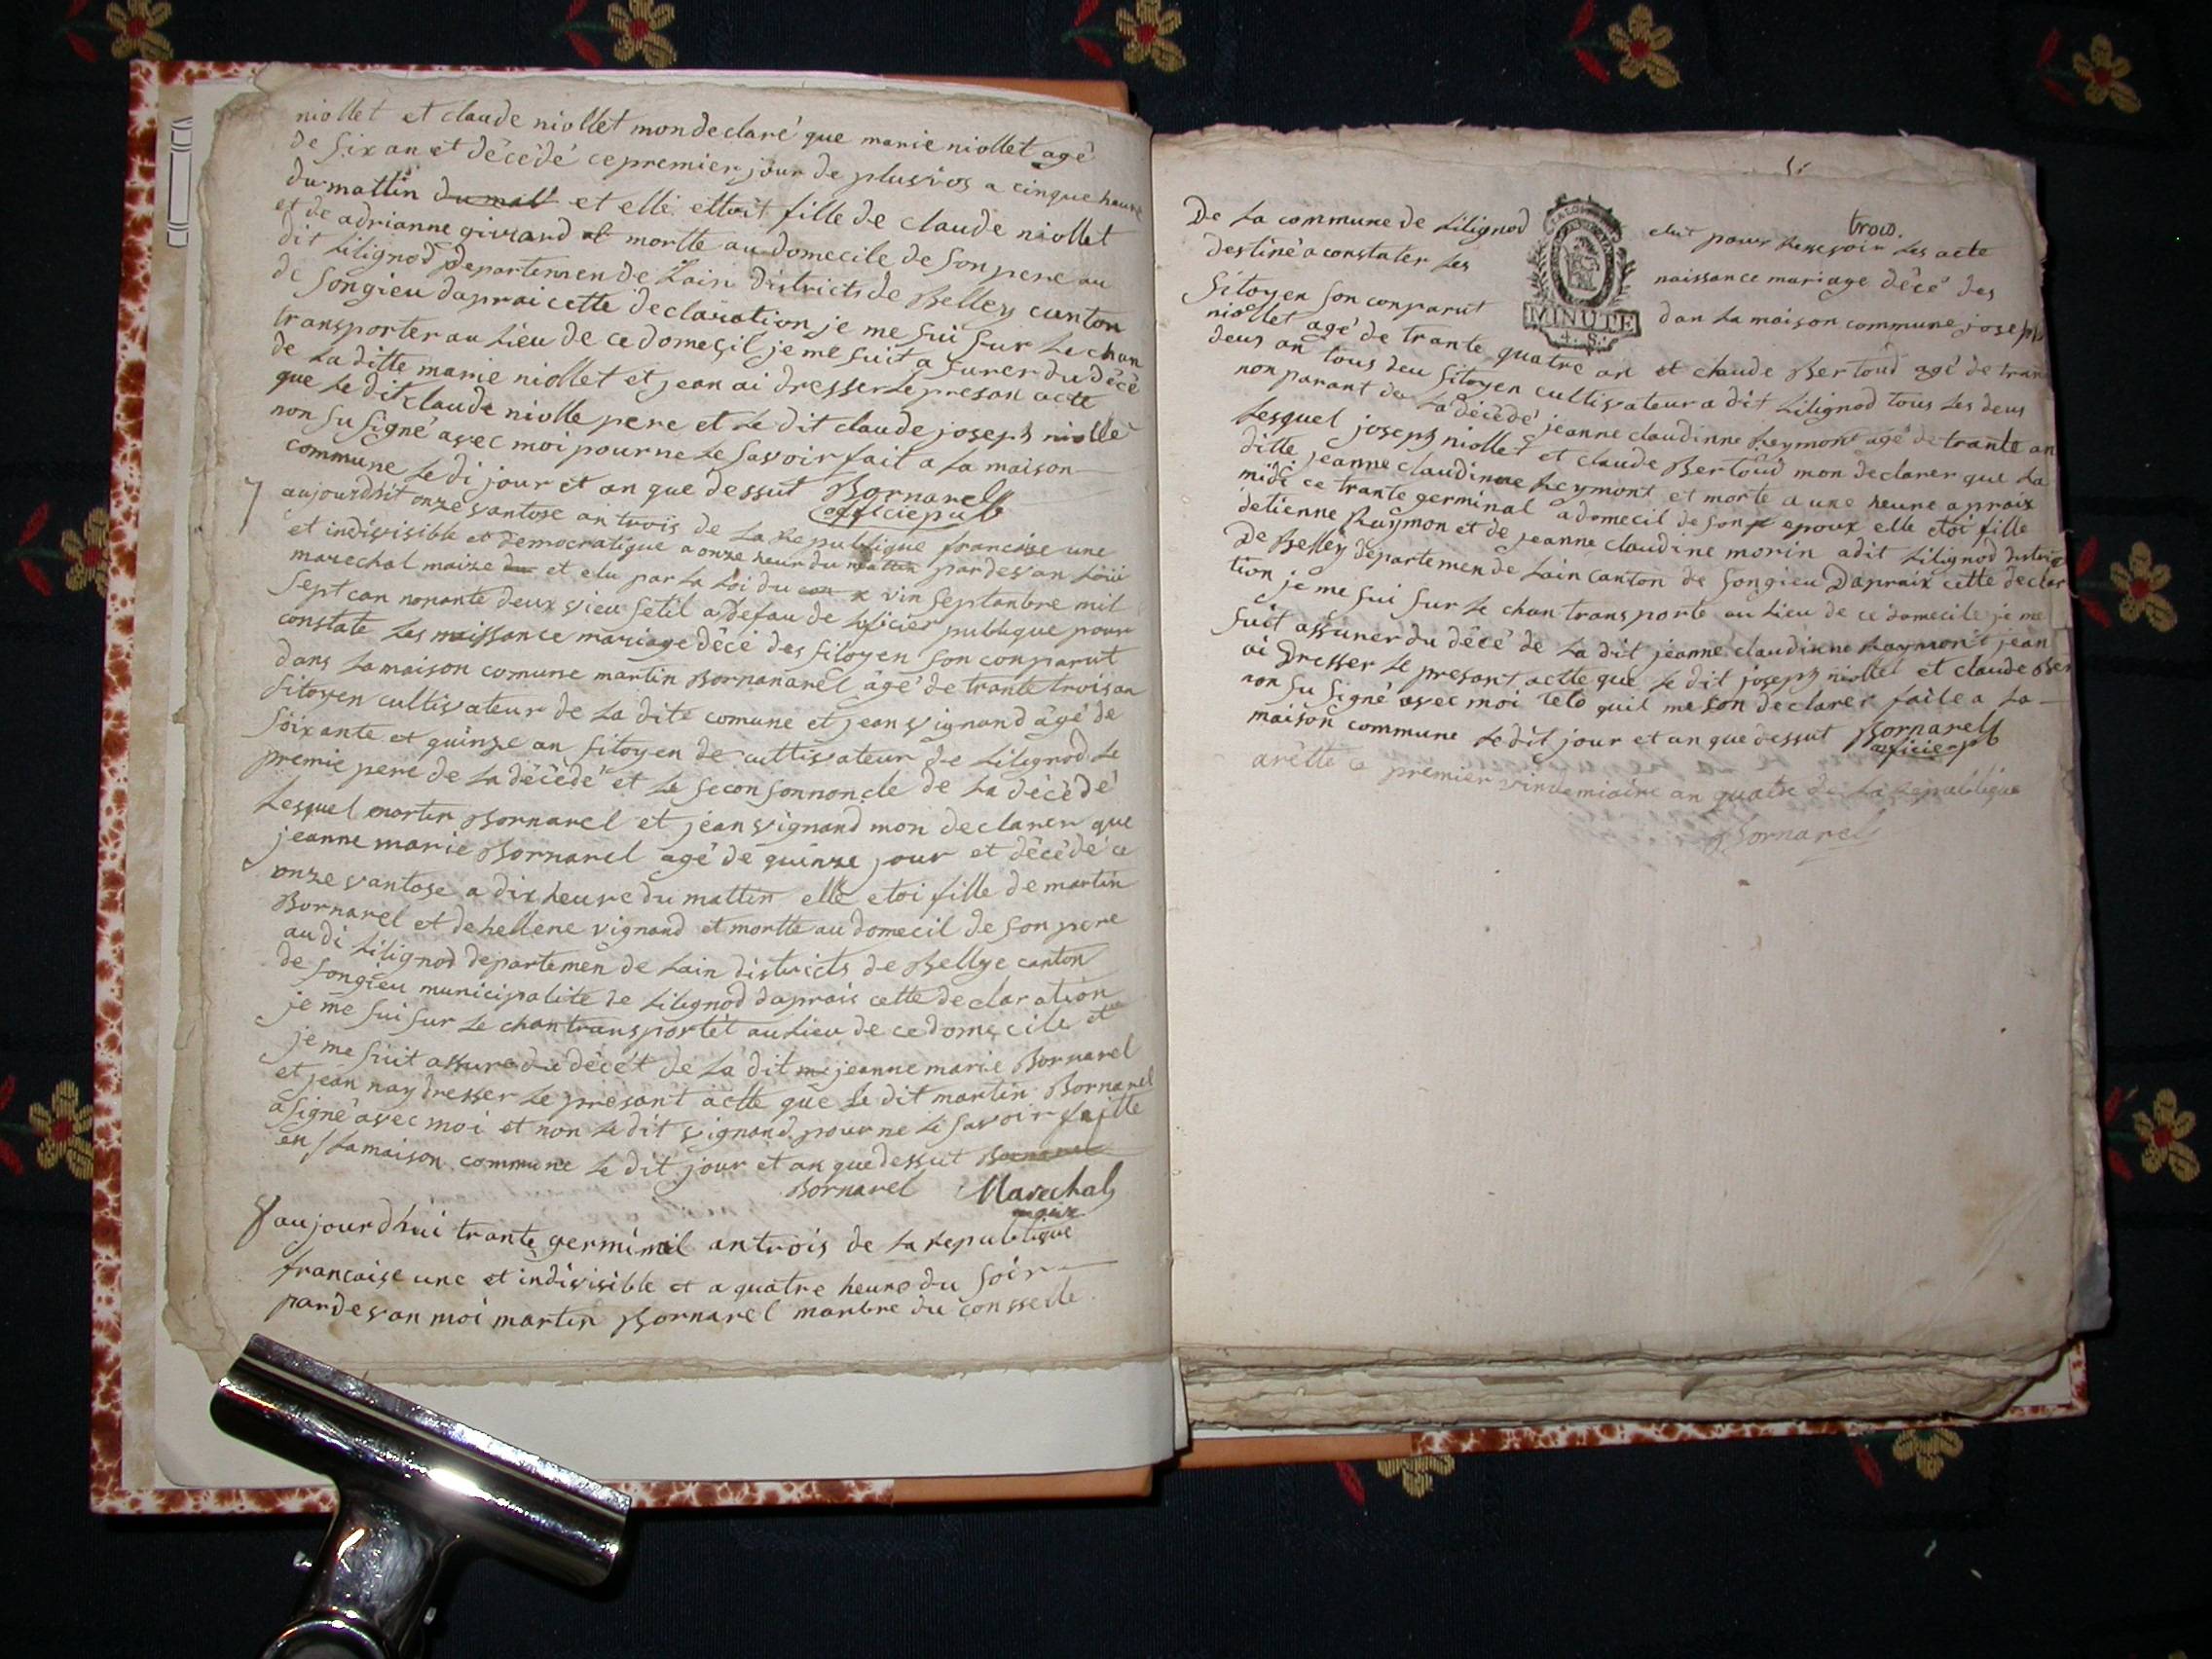 niollet et claude niollet mon declaré que marie niollet agé
de six an et décédé ce premier jour de plusvios a cinque heure
du mattin du mat et elle ettoit fille de claude niollet
et de adrianne givrard et mortte au domecile de son pere au
dit Lilignod departemen de Lain districts de Belley canton
de Songieu daprai cette declaration je me sui sur le chan
transporter au Lieu de ce domecil je me suit a surer du décé
de La ditte marie niollet et jean ai dresser le presan acte
que Le dit claude niolle pere et Le dit claude joseph niollé
non su signé avec moi pour ne le savoir fait a La maison
commune Le di jour et an que dessut Bornarel
officie pub
7 aujourdhit onze vantose an trois de La Republique francaise une
et indivisible et democratique a onze heur du mattin pardevan Loüi
marechal maize et elu par La Loi du vin septanbre mil
sept can nonante deux vieu setil a defau de loficier publique pour
constate Les naissance mariage décé des sitoyen son conparut
dans La maison comune martin Bornanarel âgé de trante trois an
sitoyen cultivateur de La dite comune et jean vignand âgé de
soixante et quinze an sitoyen de cultivateur de Lilignod Le
premie pere de La décédé et Le secon sonnoncle de La décédé
Lesquel martin Bornarel et jean vignand mon declarer que
jeanne marie Bornarel agé de quinze jour et décédé ce
onze vantose a dix heure du mattin elle etoi fille de martin
Bornarel et de hellene vignand et mortte au domecil de son pere
au di Lilignod departemen de Lain districts de Bellye canton
de songieu municipalite de Lilignod daprais cette declaration
je me sui sur Le chan transportét au Lieu de ce domecile et
je me suit assure du décét de La dit jeanne marie Bornarel
et jean nay dresser Le presant actte que Le dit martin Bornarel
a signé avec moi et non Le dit vignand pour ne Le savoir faitte
en La maison commune Le dit jour et an que dessut Bornarel
Bornarel Marechal
maire
8 aujourdhui trante germinal an trois de La Republique
francaise une et indivisible et a quatre heure du soir
pardevan moi martin Bornarel manbre du consselle
trois.
De La commune de Lilignod elut pour Resesoir Les acte
destiné a constater Les naissance mariage décé des
sitoyen son conparut dan La maison commune joseph
MINUTE
4. S.
niollet agé de trante quatre an et claude Bertoud agé de tran
deus an tous deu sitoyen cultivateur a dit Lilignod tous Les deus
non parant de La décédé jeanne claudinne Reymont agé de trante an
Lesquel joseph niollet et claude Bertoud mon declarer que La
ditte jeanne claudinne Reymont et morte a une heure apraix
midi ce trante germinal a domecil de son epoux elle etoi fille
detienne Raymon et de jeanne claudine morin a dit Lilignod distric
De Belley departemen de Lain canton de Songieu Dapraix cette declar
tion je me sui sur Le chan transporte au Lieu de ce domecile je me
suit assurer du décé de La dit jeanne claudinne Raymont jean
ai Dresser Le presant actte que Le dit joseph niollet et claude Ber
non su signé avec moi quil me son declarer faite a La
maison commune Le dit jour et an que dessut Bornarel
officier pb
arêtte ce premier vindemiaire an quatre de La Republique
Bornarel